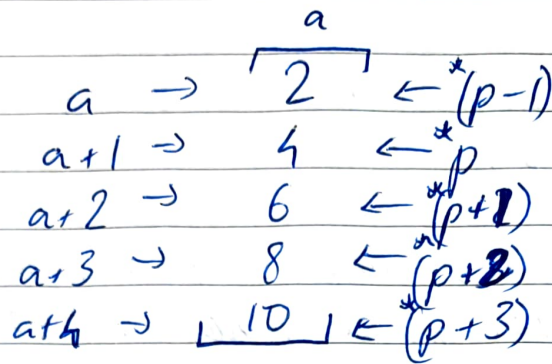 a
a → 2 ← *(p-1)
a+1 → 4 ← *p
a+2 → 6 ← *(p+1)
a+3 → 8 ← *(p+2)
a+4 → 10 ← *(p+3)